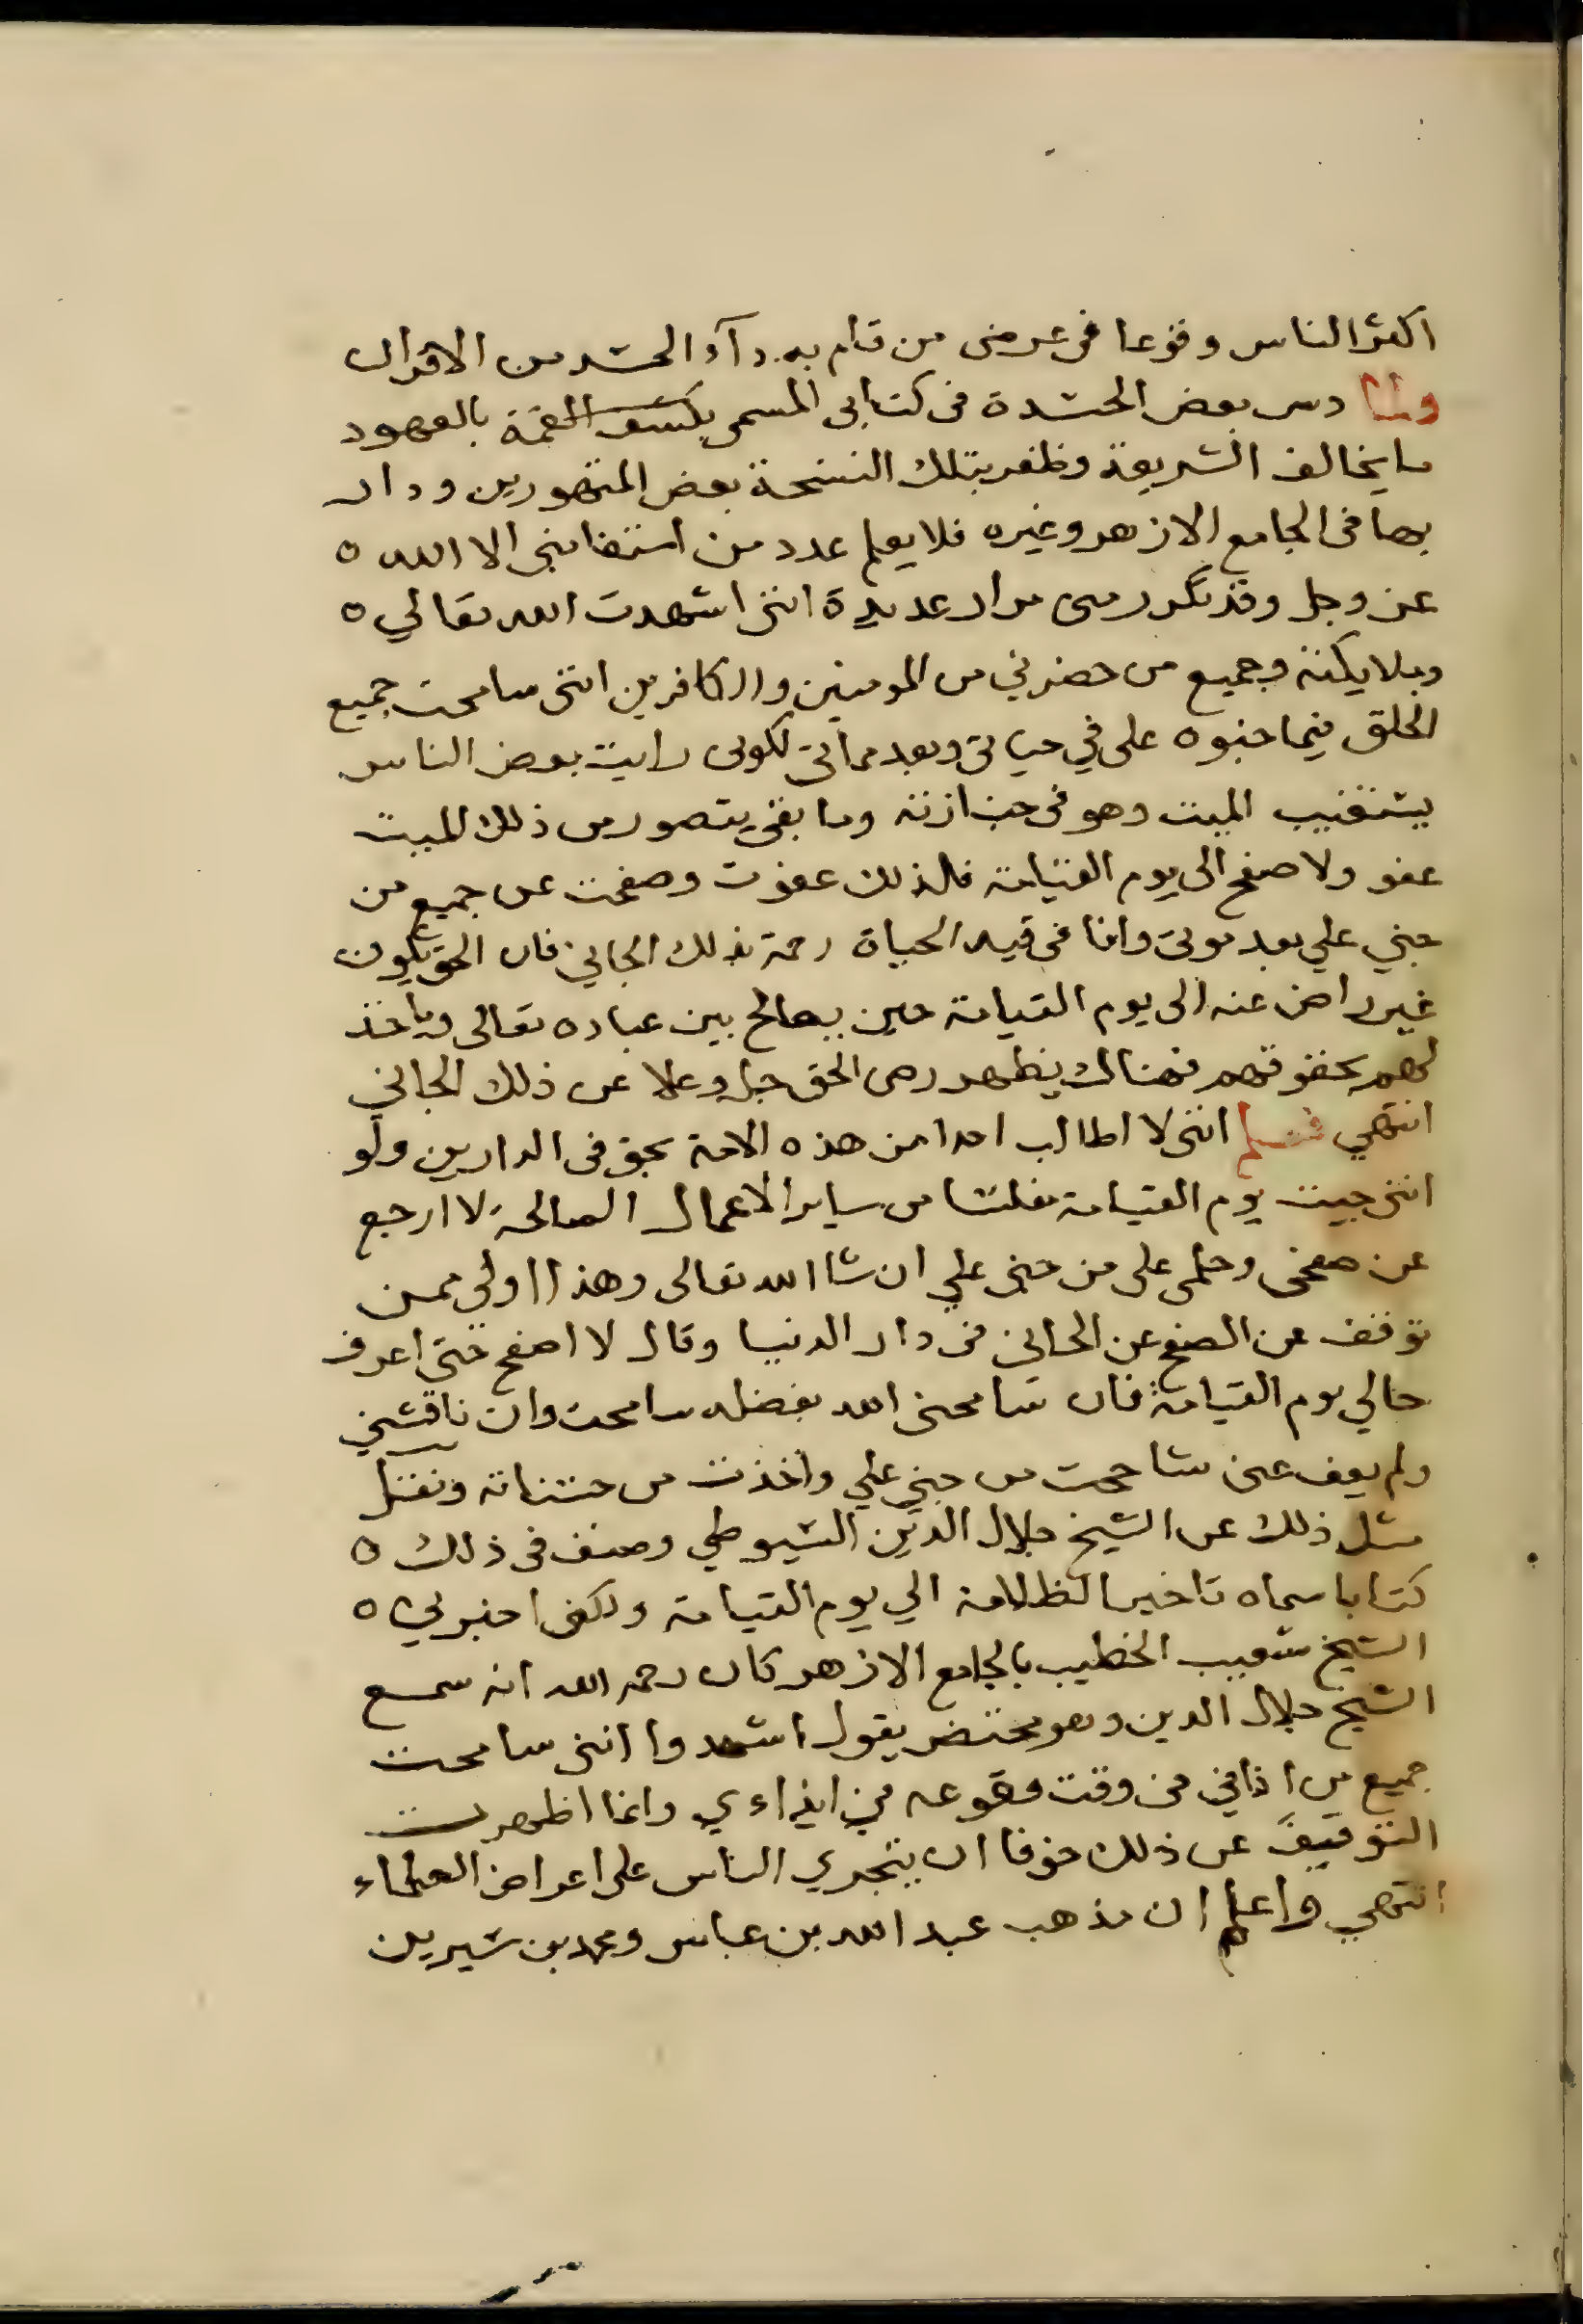 اكثر الناس وقوعا فى عرضى من قام به دآء الحسد من الاقران
ولما دس بعض الحسدة فى كتابى المسمى بكشف الغمة بالعهود
ما يخالف الشريعة وظفر بتلك النسخة بعض المتهورين ودار
بها فى الجامع الازهر وغيره فلا يعلم عدد من استغابنى الا الله ٥
عز وجل وقد تكرر منى مرار عديدة اننى اشهدت الله تعالي ٥
وملايكته وجميع من حضرني من المومنين والكافرين اننى سامحت جميع
الخلق فيما جنوه على في حياتى وبعد مماتى لكونى رايت بعض الناس
يستغيب الميت وهو فى جنازته وما بقى يتصور من ذلك الميت
عفو ولا صفح الى يوم القيامة فلذلك عفوت وصفحت عن جميع من
جني علي بعد موتى وانا فى قيد الحياة رحمة بذلك الجاني فان الحق يكون
غير راض عنه الى يوم القيامة حين يصالح بين عباده تعالى وياخذ
لهم بحقوقهم فهناك يظهر رضى الحق جل وعلا عن ذلك الجاني
انتهي فعلم اننى لا اطالب احدا من هذه الامة بحق فى الدارين ولو
اننى جيت يوم القيامة مفلسا من ساير الاعمال الصالحة لا ارجع
عن صفحى وحلمى على من جنى علي ان شا الله تعالى وهذا اولي ممن
توقف عن الصفح عن الجانى فى دار الدنيا وقال لا اصفح حتى اعرف
حالي يوم القيامة فان سامحنى الله بفضله سامحت وان ناقشني
ولم يعف عنى شاححت من جني علي واخذت من حسناته ونقل
مثل ذلك عن الشيخ جلال الدين السيوطي وصنف فى ذلك ٥
كتابا سماه تاخير الظلامة الي يوم القيامة ولكن اخبرني ٥
الشيخ شعيب الخطيب بالجامع الازهر كان رحمه الله انه سمع
الشيخ جلال الدين وهو محتضر يقول اشهدوا اننى سامحت
جميع من اذاني من وقت وقوعه في ايذاءي وانما اظهرت
التوقيف عن ذلك خوفا ان يتجري الناس على اعراض العلماء
انتهي واعلم ان مذهب عبد الله بن عباس ومحمد بن سيرين